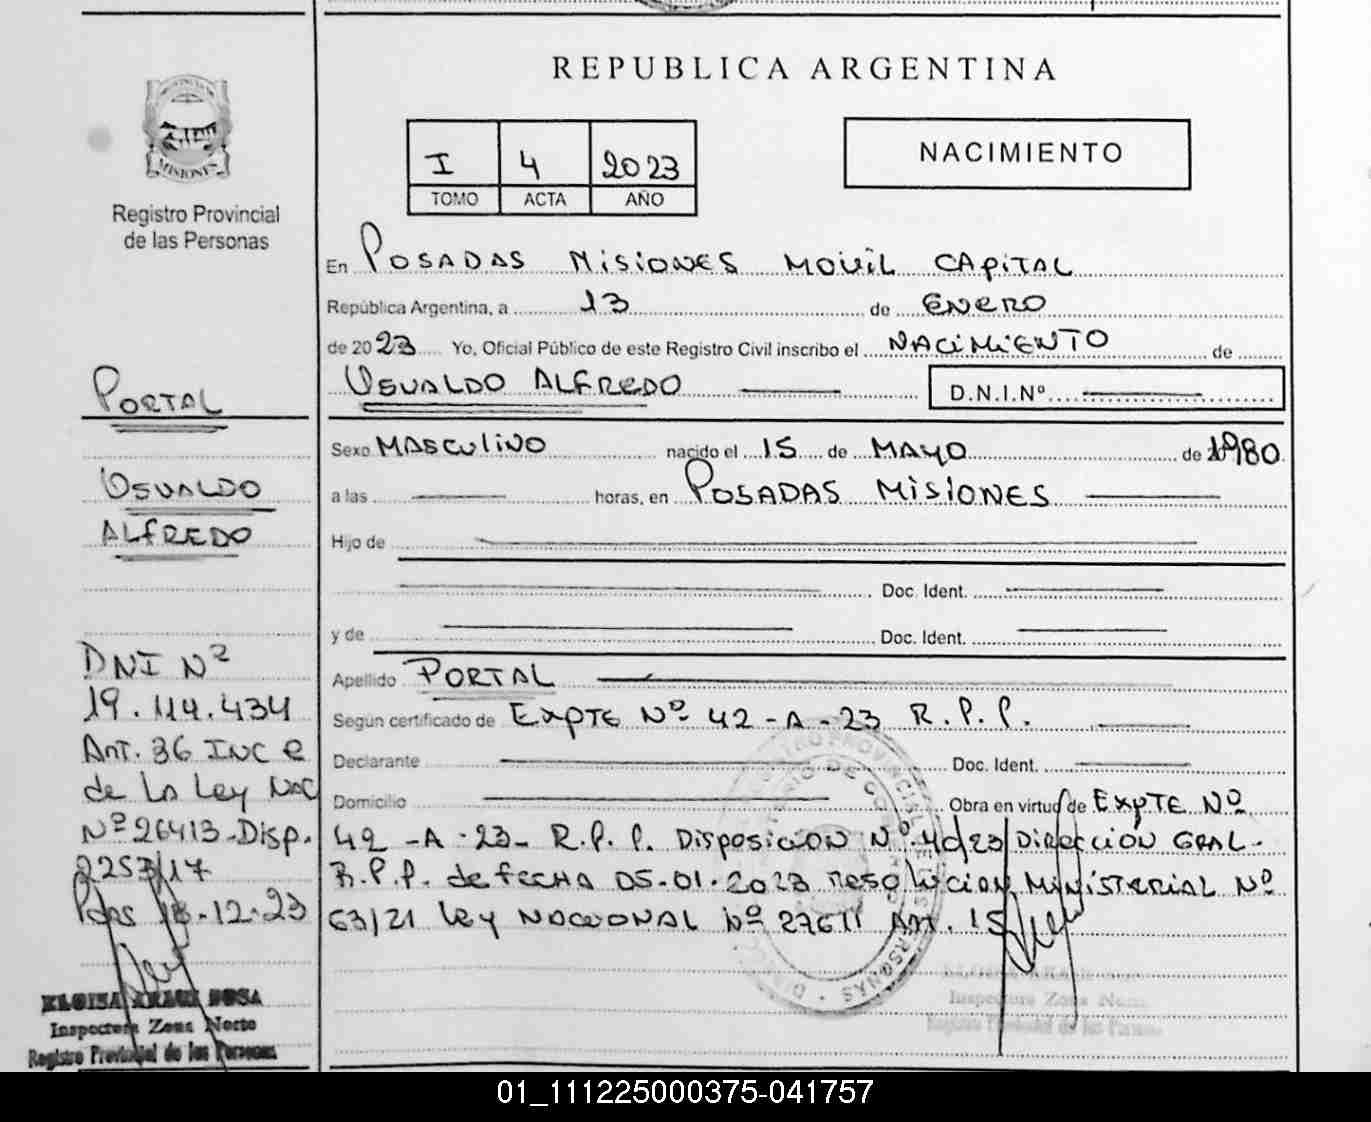 REPUBLICA ARGENTINA
MISIONES
Registro Provincial
de las Personas
I 4 2023
TOMO ACTA AÑO
NACIMIENTO
En POSADAS MISIONES MOVIL CAPITAL
República Argentina, a 13 de ENERO
de 2023 Yo, Oficial Público de este Registro Civil inscribo el NACIMIENTO de
OSVALDO ALFREDO D.N.I.Nº
Sexo MASCULINO nacido el 15 de MAYO de 1980
a las horas, en POSADAS MISIONES
Hijo de
Doc. Ident.
y de Doc. Ident.
Apellido PORTAL
Según certificado de EXPTE Nº 42-A-23 R.P.P.
Declarante Doc. Ident.
Domicilio Obra en virtud de EXPTE Nº
42-A-23- R.P.P. DISPOSICION Nº 40/23 DIRECCIÓN GRAL-
R.P.P. de FECHA 05.01.2023 RESOLUCION MINISTERIAL Nº
63/21 Ley NACIONAL Nº 27611 ART. 15
PORTAL
OSVALDO
ALFREDO
DNI Nº
19.114.434
ART. 36 INC e
de la Ley NAC
Nº 26413-Disp.
2253/17
Pdas 18-12-23
ELOISA SOSA
Inspectora Zona Norte
Registro Provincial de las Personas
Inspectora Zona Norte
Registro Provincial de las Personas
01_111225000375-041757